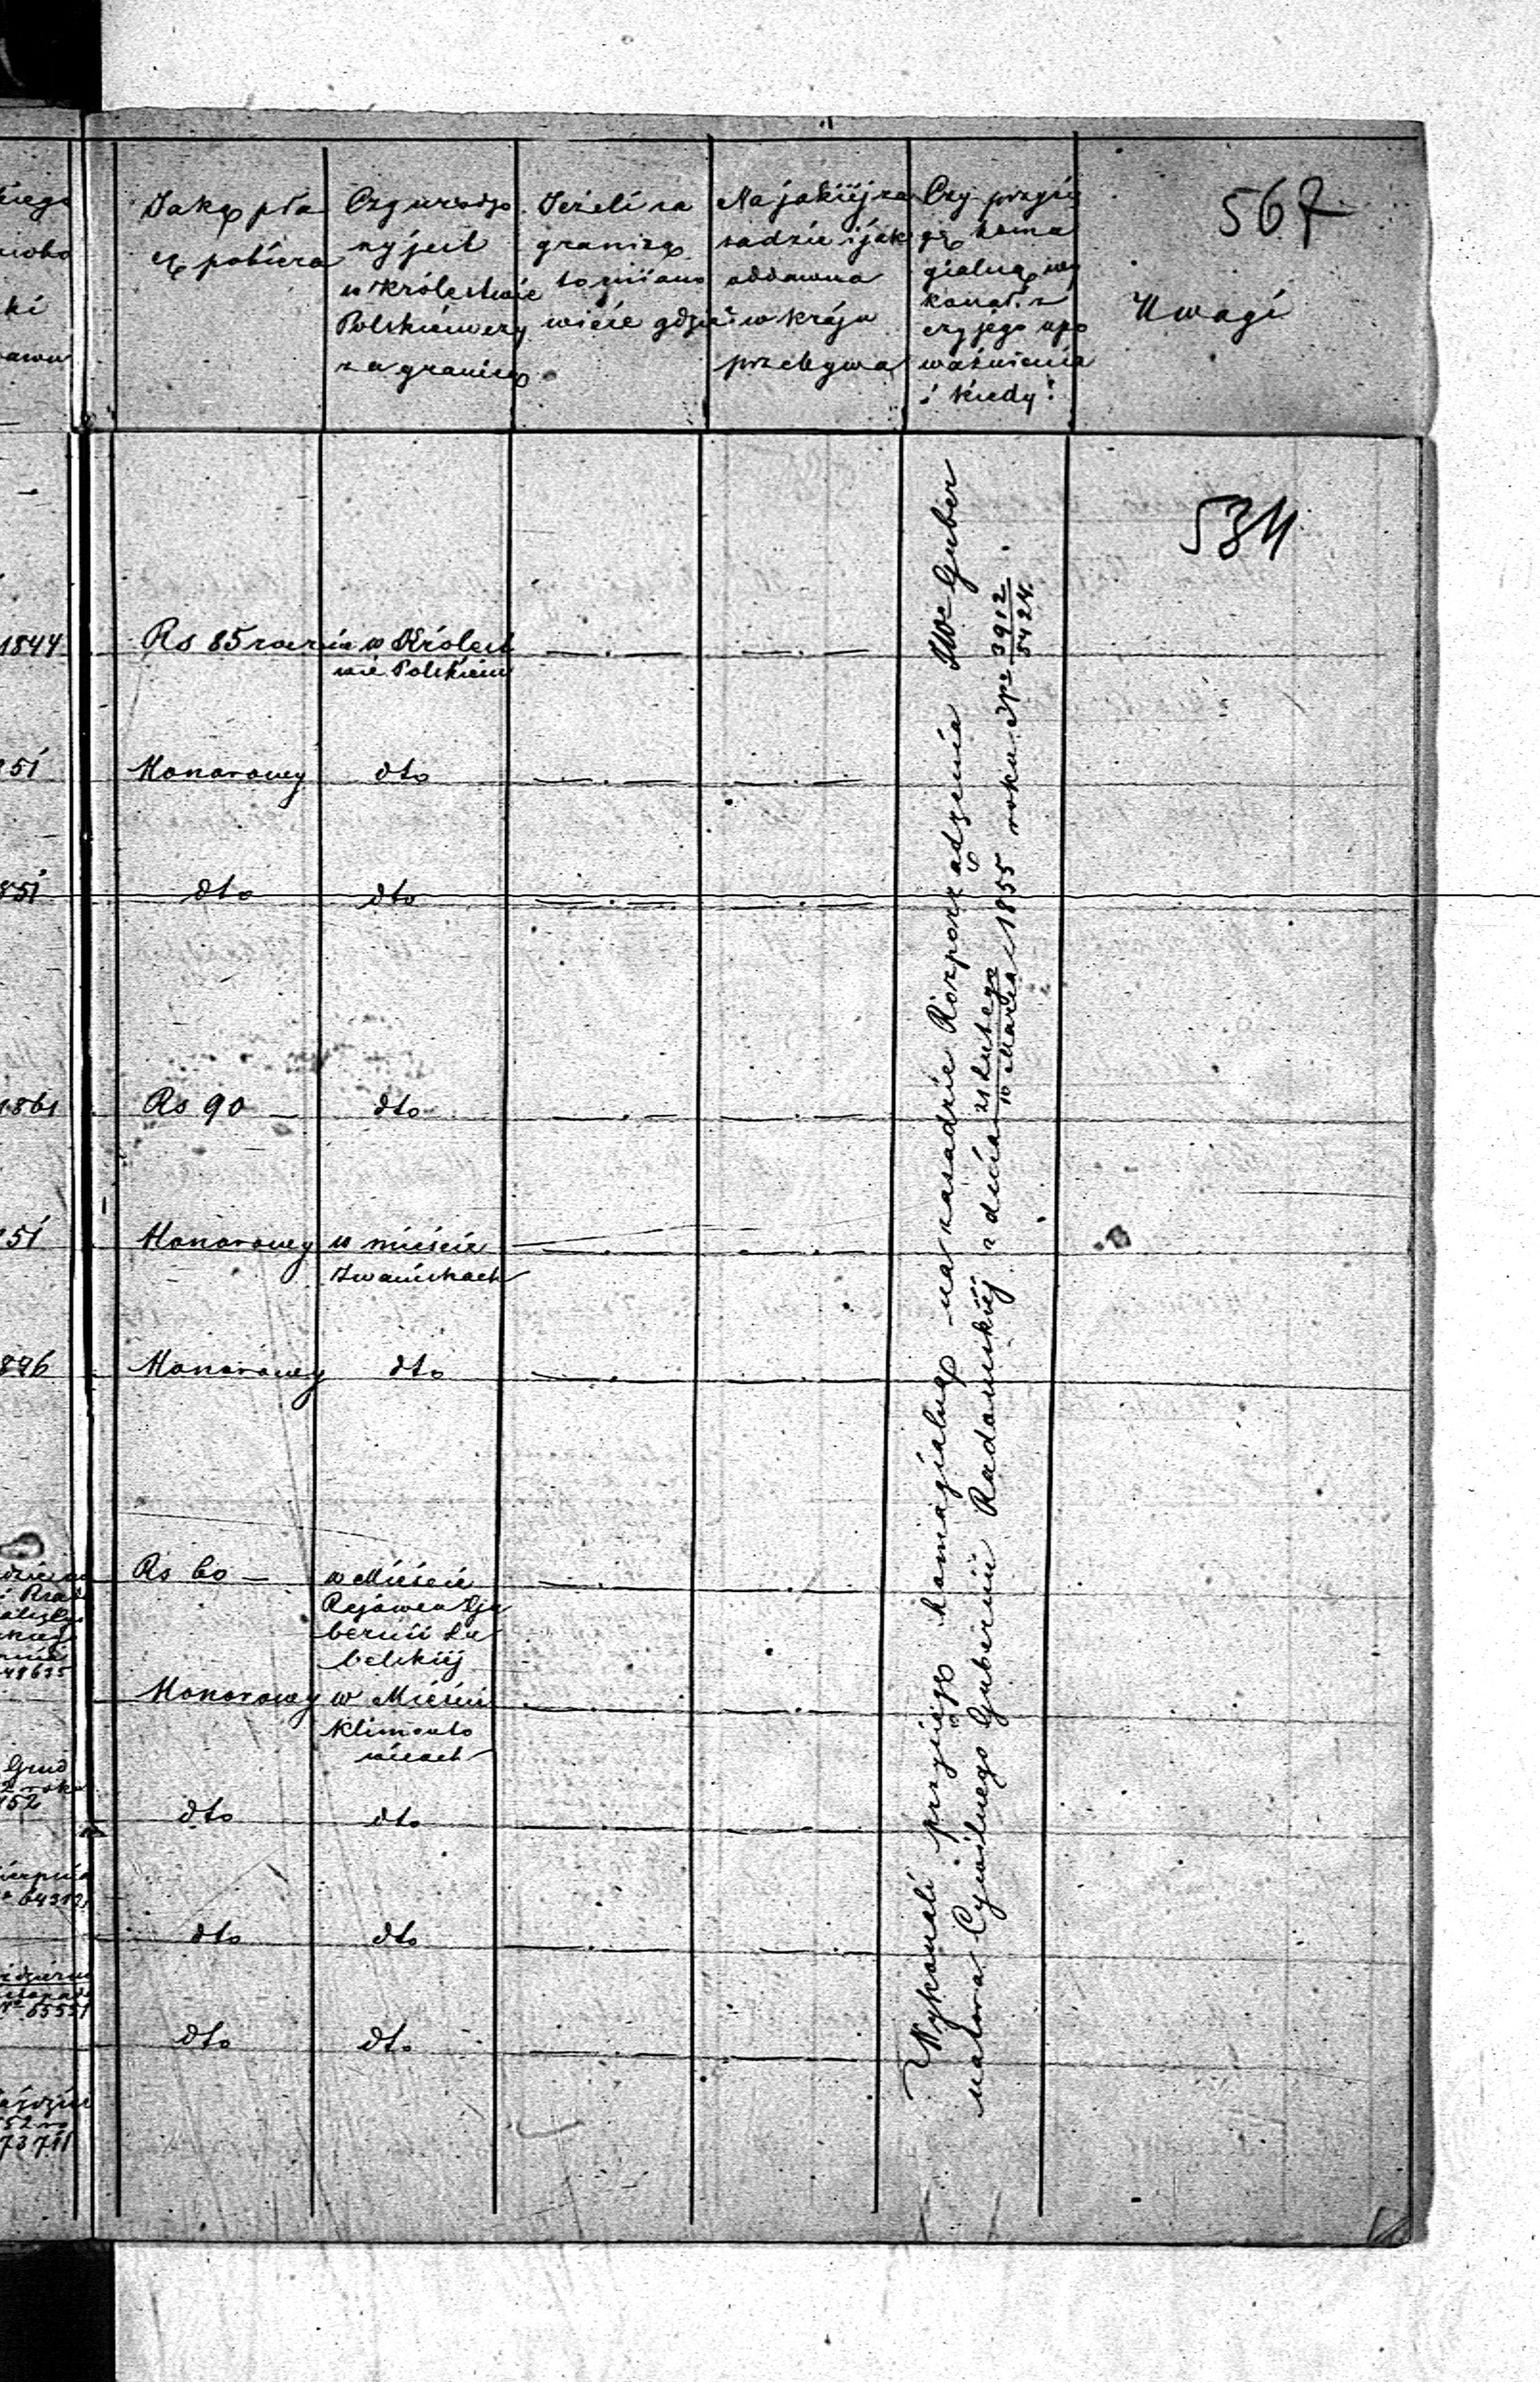 567
Jaką pła
cę pobiera
Czy urodzo
ny jest
w Królestwie
Polskiém czy
za granicą
Jeżeli za
granicą
to mianο
wicie gdzie
Na jakiéj za
sadzie i jak
oddawna
w kraju
przebywa
Czy przysię
gę homa
gialną wy
konał, z
czyjego upo
ważnienia
i kiedy?
Uwagi
534
1844
Rs 85 rocznie
w Królest
wie Polskiem
51
Honorowy
dto
851
dto
dto
1861
Rs 90 —
dto
51
Honorowy
w mieście
Iwaniskach
846
Honorowy
dto
Rs 60 —
w Mieście
Rejowcu Gu
bernii Lu
belskiéj
48635
Honorowy
w Mieście
Klimonto
wicach
Grud
2 roku
152
dto
dto
64312
dto
dto
65551
dto
dto
52 ro
73711
Wykonali przysięgę homagialną na zasadzie Rozporządzenia JW Guber
natora Cywilnego Gubernii Radomskiéj z dnia 21 Lutego / 10 Marca 1855 roku Nr 3912 / 5424.